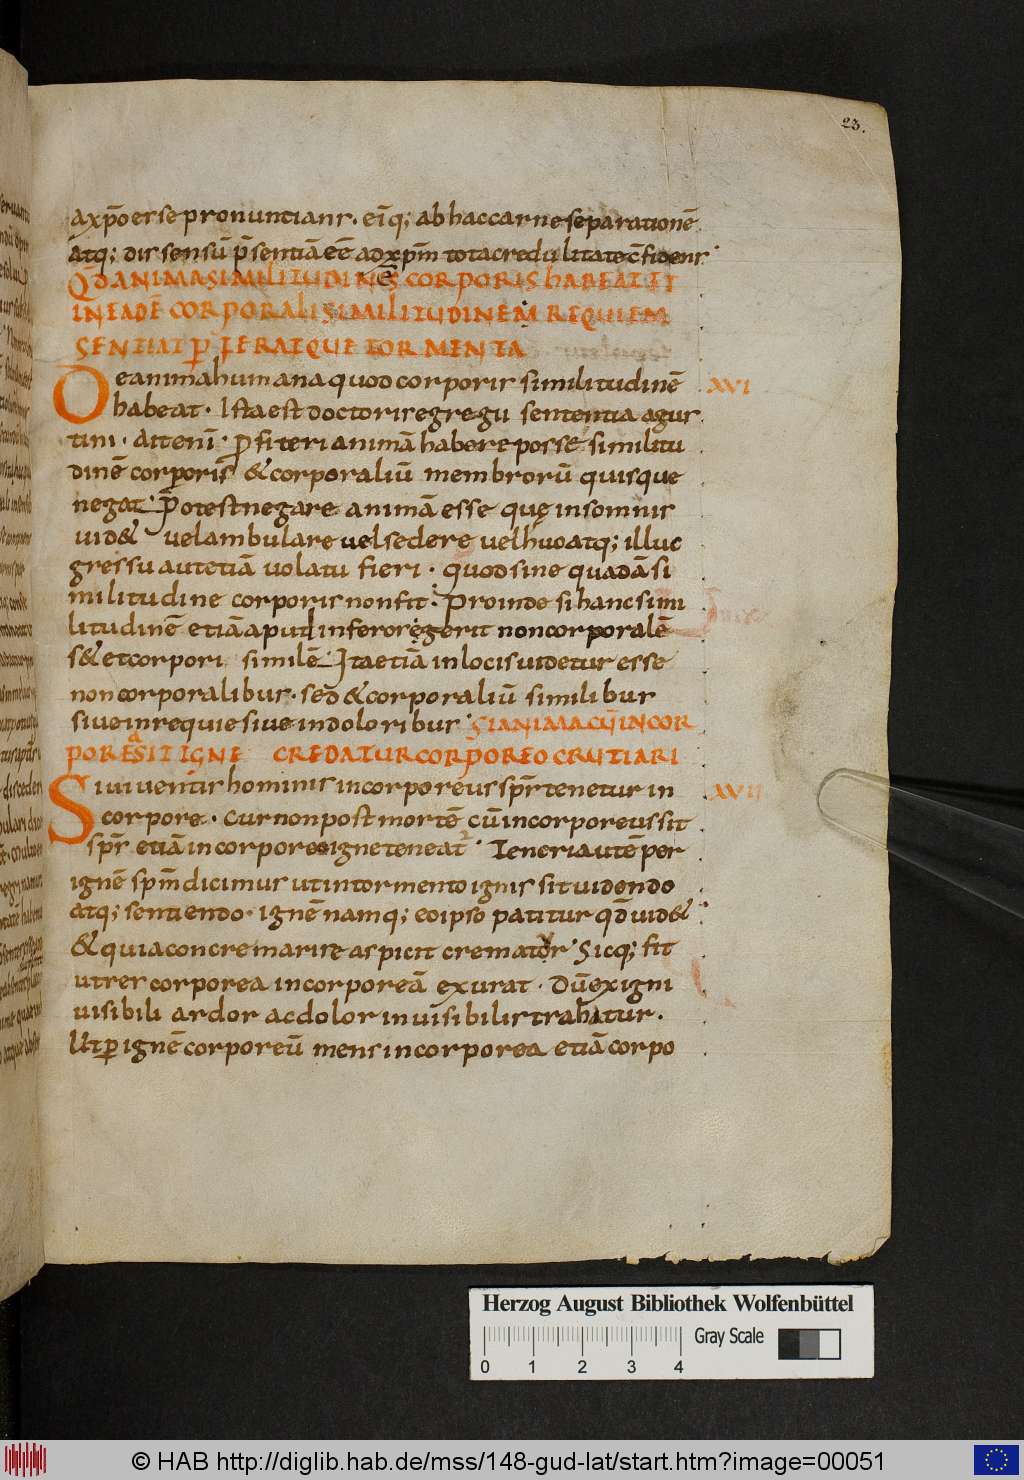 23.
a xp̄o erse pronuntians. eiq̄; ab hac carne separationē
atq; disсensū p̄sentiā eē ad xp̄m tota credulitate c̄fidens.
Qd̄ ANIMA SIMILITUDINES CORPORIS HABEAT ET
IN EADĒ CORPORALI SIMILITUDINEM REQUIEM
SENTIAT PERFERATQUE TORMENTA
De anima humana quod corporis similitudinē XVI
habeat. Ista est doctoris egregii sententia agus
tini. ait enī. p̄fiteri animā habere posse similitu
dinē corporis & corporaliū membrorū quisque
negat. p̄otest negare animā esse quę in somnis
uid& vel ambulare vel sedere vel huc atq; illuc
gressu aut etiā volatu fieri. quod sine quadā si
militudine corporis non fit. Proinde si hanc simi
litudinē etiā apud inferos ęgerit non corporalē
s& et corpori similē. Ita etiā in locis videtur esse
non corporalibus. sed & corporaliū similibus
sive in requie sive in doloribus. SI ANIMA CŪ INCOR
POREA SIT IGNE CREDATUR CORPOREO CRUTIARI
Si viventis hominis incorporeus spr̄ tenetur in XVII
corpore. cur non post mortē cū incorporeus sit
spr̄ etiā in corporeo igne teneat. Teneri autē per
ignē spm̄ dicimus ut in tormento ignis sit videndo
atq; sentiendo. ignē namq; eo ipso patitur qd̄ uid&
& quia concremari se aspicit crematur. Sicq; fit
ut res corporea incorporeā exurat. Dū ex igni
visibili ardor ac dolor invisibilis trahitur.
Ut p ignē corporeū mens incorporea etiā corpo
Herzog August Bibliothek Wolfenbüttel
Gray Scale
0 1 2 3 4
© HAB http://diglib.hab.de/mss/148-gud-lat/start.htm?image=00051